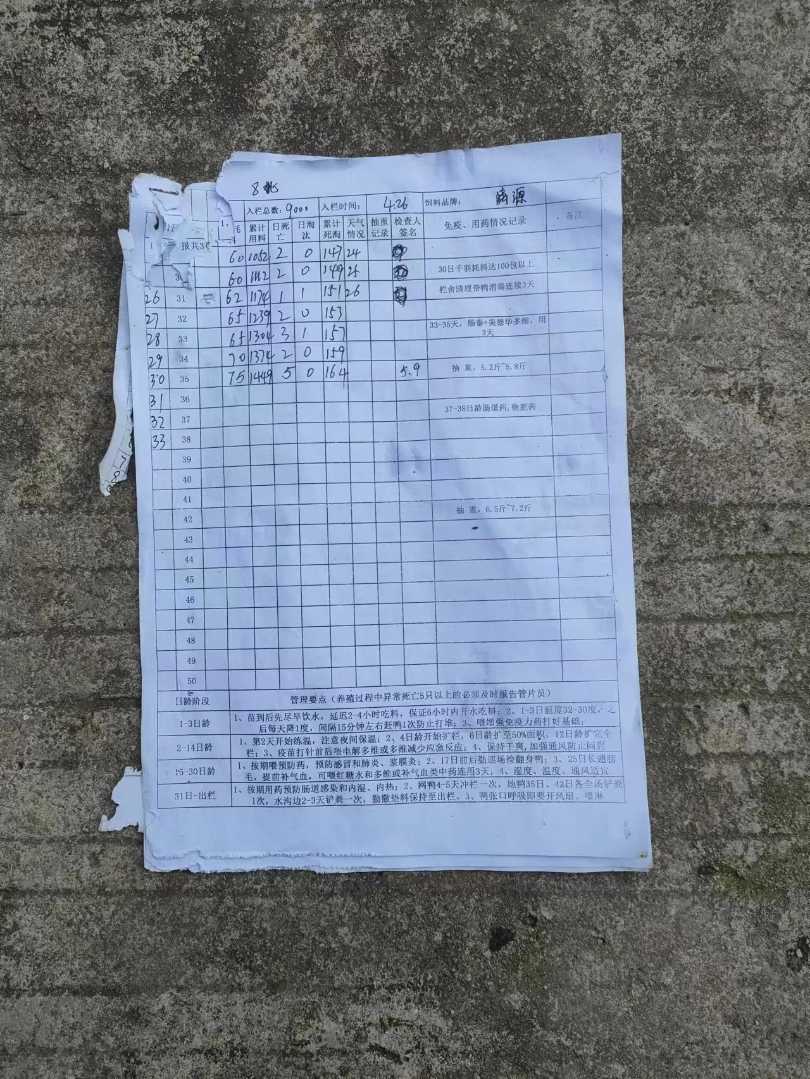 8批
入栏总数: 9000 入栏时间: 4.26 饲料品牌:
累计用料 日死亡 日淘汰 累计死淘 天气情况 抽重记录 检查人签名 免疫、用药情况记录 备注
60 1052 2 0 147 24
60 1112 2 0 149 25 30日千羽耗料达100包以上
26 31 62 1174 1 1 151 26 栏舍清理带鸭消毒连续3天
27 32 65 1239 2 0 153
28 33 65 1304 3 1 157 33-35天,
29 34 70 1374 2 0 159
30 35 75 1449 5 0 164 5.9 抽重, 5.2斤~5.8斤
31 36
32 37 37-38日龄肠道药,
33 38
39
40
41
42 抽重, 6.5斤~7.2斤
43
44
45
46
47
48
49
50
日龄阶段 管理要点(养殖过程中异常死亡5只以上的必须及时报告管片员)
1-3日龄 1、苗到后先尽早饮水, 延迟2-4小时吃料, 保证6小时内开水吃料; 2、1-3日温度32-30度,
后每天降1度, 间隔15分钟左右赶鸭1次防止打堆; 3、喂增强免疫力药打好基础;
2-14日龄 1、第2天开始练温, 注意夜间保温; 2、4日龄开始扩栏, 6日龄扩至50%面积, 12日龄扩完全
栏; 3、疫苗打针前后喂电解多维或多维减少应激反应; 4、保持干爽, 加强通风防止
15-30日龄 1、按期喂预防药, 预防感冒和肺炎、浆膜炎; 2、17日前后勤巡场给翻身鸭; 3、25日长翅筋
毛, 提前补气血, 可喂红糖水和多维或补气血类中药连用3天, 4、湿度、温度、通风适宜
31日-出栏 1、按期用药预防肠道感染和内湿、内热; 2、网鸭4-5天冲栏一次, 地鸭35日、42日各全场铲粪
1次, 水沟边2-3天铲粪一次, 勤撒垫料保持至出栏。3、鸭张口呼吸即要开风扇、喷淋